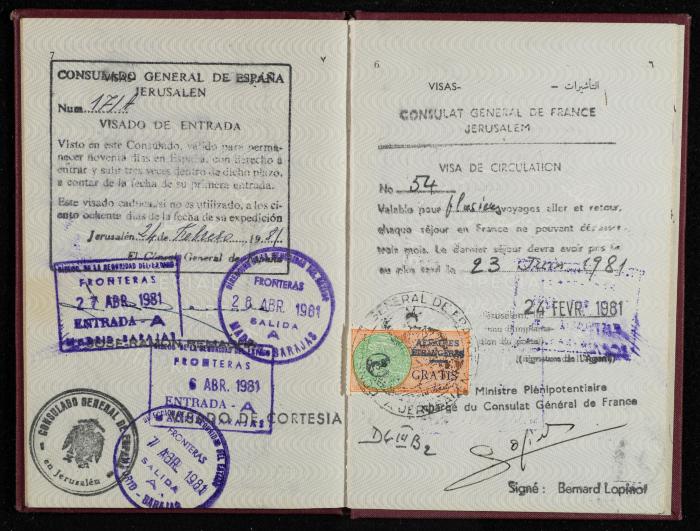 7 ٧
CONSULADO GENERAL DE ESPAÑA
JERUSALEN
Num. 171A
VISADO DE ENTRADA
Visto en este Consulado, válido para perma-
necer noventa días en España, con derecho a
entrar y salir tres veces dentro de dicho plazo,
a contar de la fecha de su primera entrada.
Este visado caduca, si no es utilizado, a los ci-
ento ochenta días de la fecha de su expedición
Jerusalén, 24 de Febrero 1981
El Cónsul General de España
FRONTERAS
27 ABR. 1981
ENTRADA-A
MADRID-BARAJAS
FRONTERAS
28 ABR. 1981
SALIDA
A
MADRID-BARAJAS
FRONTERAS
6 ABR. 1981
ENTRADA-A
DE CORTESIA
FRONTERAS
7 ABR. 1981
SALIDA
A
MADRID-BARAJAS
CONSULADO GENERAL DE ESPAÑA
en Jerusalén
6 ٦
VISAS- التأشيرات -
CONSULAT GENERAL DE FRANCE
JERUSALEM
VISA DE CIRCULATION
No 54
Valable pour plusieurs voyages aller et retour,
chaque séjour en France ne pouvant
trois mois. Le dernier séjour devra avoir
au plus tard le 23 Juin 1981
24 FEVR. 1981
(signature de l'Agent)
GENERAL DE FRANCE
AFFAIRES
ETRANGERES
GRATIS
A JERUSALEM
Ministre Plénipotentiaire
Chargé du Consulat Général de France
D6 IV B2
Signé : Bernard Lopinot